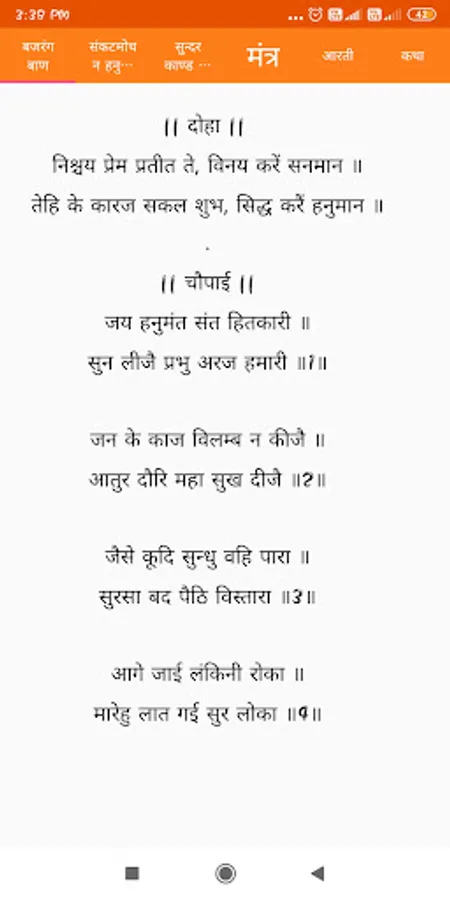 3:39 PM ... 42
बजरंग बाण
संकटमोच न हनु...
सुन्दर काण्ड ...
मंत्र
आरती
कथा
|| दोहा ||
निश्चय प्रेम प्रतीत ते, विनय करें सनमान ॥
तेहि के कारज सकल शुभ, सिद्ध करैं हनुमान ॥
.
|| चौपाई ||
जय हनुमंत संत हितकारी ॥
सुन लीजै प्रभु अरज हमारी ॥1॥
जन के काज विलम्ब न कीजै ॥
आतुर दौरि महा सुख दीजै ॥2॥
जैसे कूदि सुन्धु वहि पारा ॥
सुरसा बद पैठि विस्तारा ॥3॥
आगे जाई लंकिनी रोका ॥
मारेहु लात गई सुर लोका ॥4॥